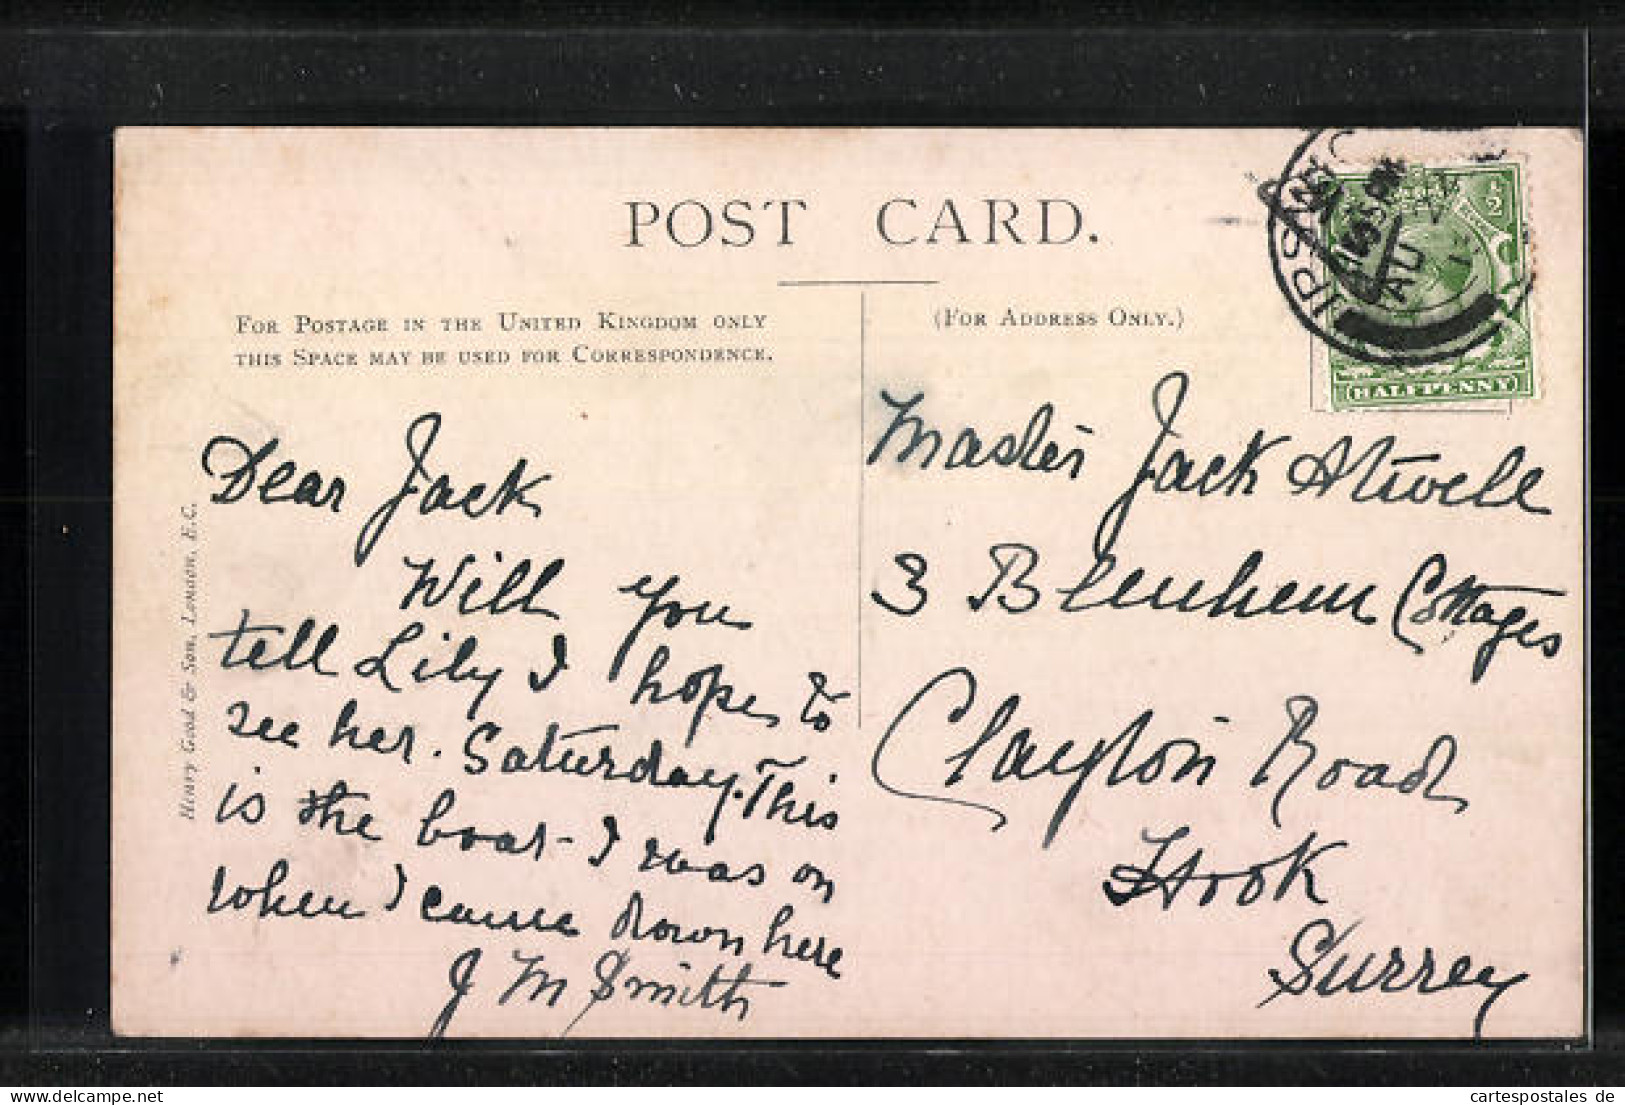 POST CARD.
FOR POSTAGE IN THE UNITED KINGDOM ONLY
THIS SPACE MAY BE USED FOR CORRESPONDENCE.
(FOR ADDRESS ONLY.)
IPSWIC
AU
½
HALFPENNY
Henry Good & Son, London, E.C.
Dear Jack
Will you
tell Lily I hope to
see her. Saturday. This
is the boat - I was on
when I came down here
J M Smith
Master Jack Atwell
3 Blenheim Cottages
Clayton Road
Hook
Surrey
cartespostales de